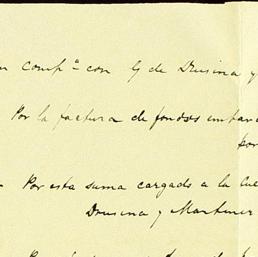 compª con G de Drusina y
Por la factura de fondos embar
por
Por esta suma cargado a la Cue
Drusina y Martinez